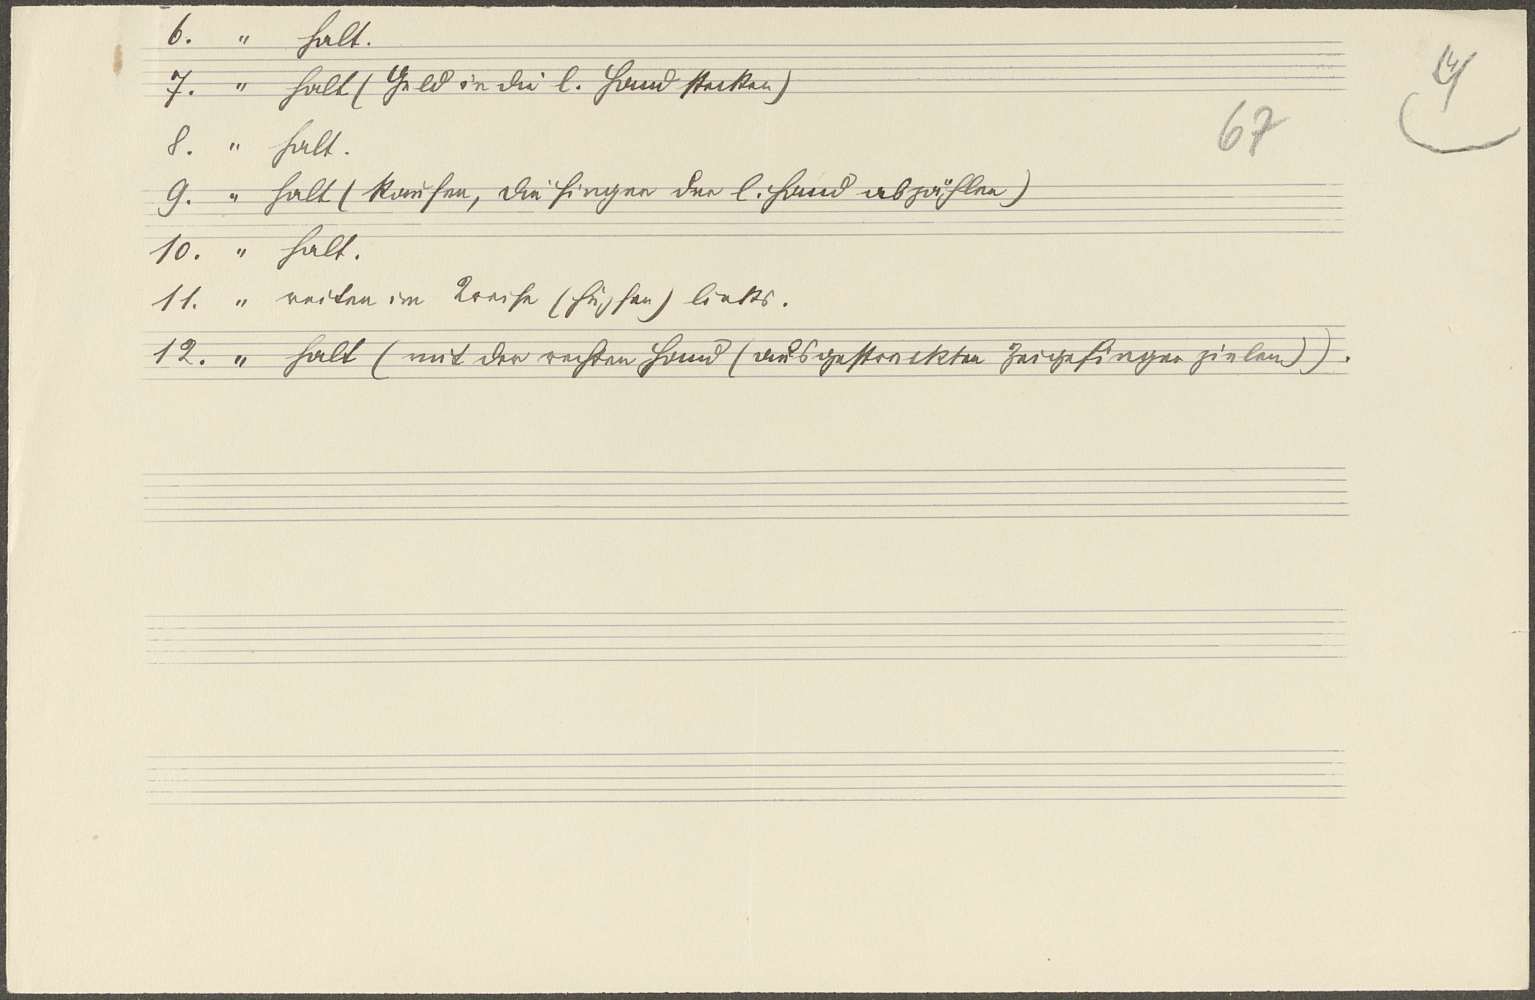 6. " halt.
7. " halt (Geld in die l. Hand stecken)
67
8. " halt.
9. " halt (kaufen, die Finger der l. Hand abzählen)
10. " halt.
11. " reiten im Kreise (hüpfen) links.
12. " halt (mit der rechten Hand (ausgestreckten Zeigefinger zielen)).